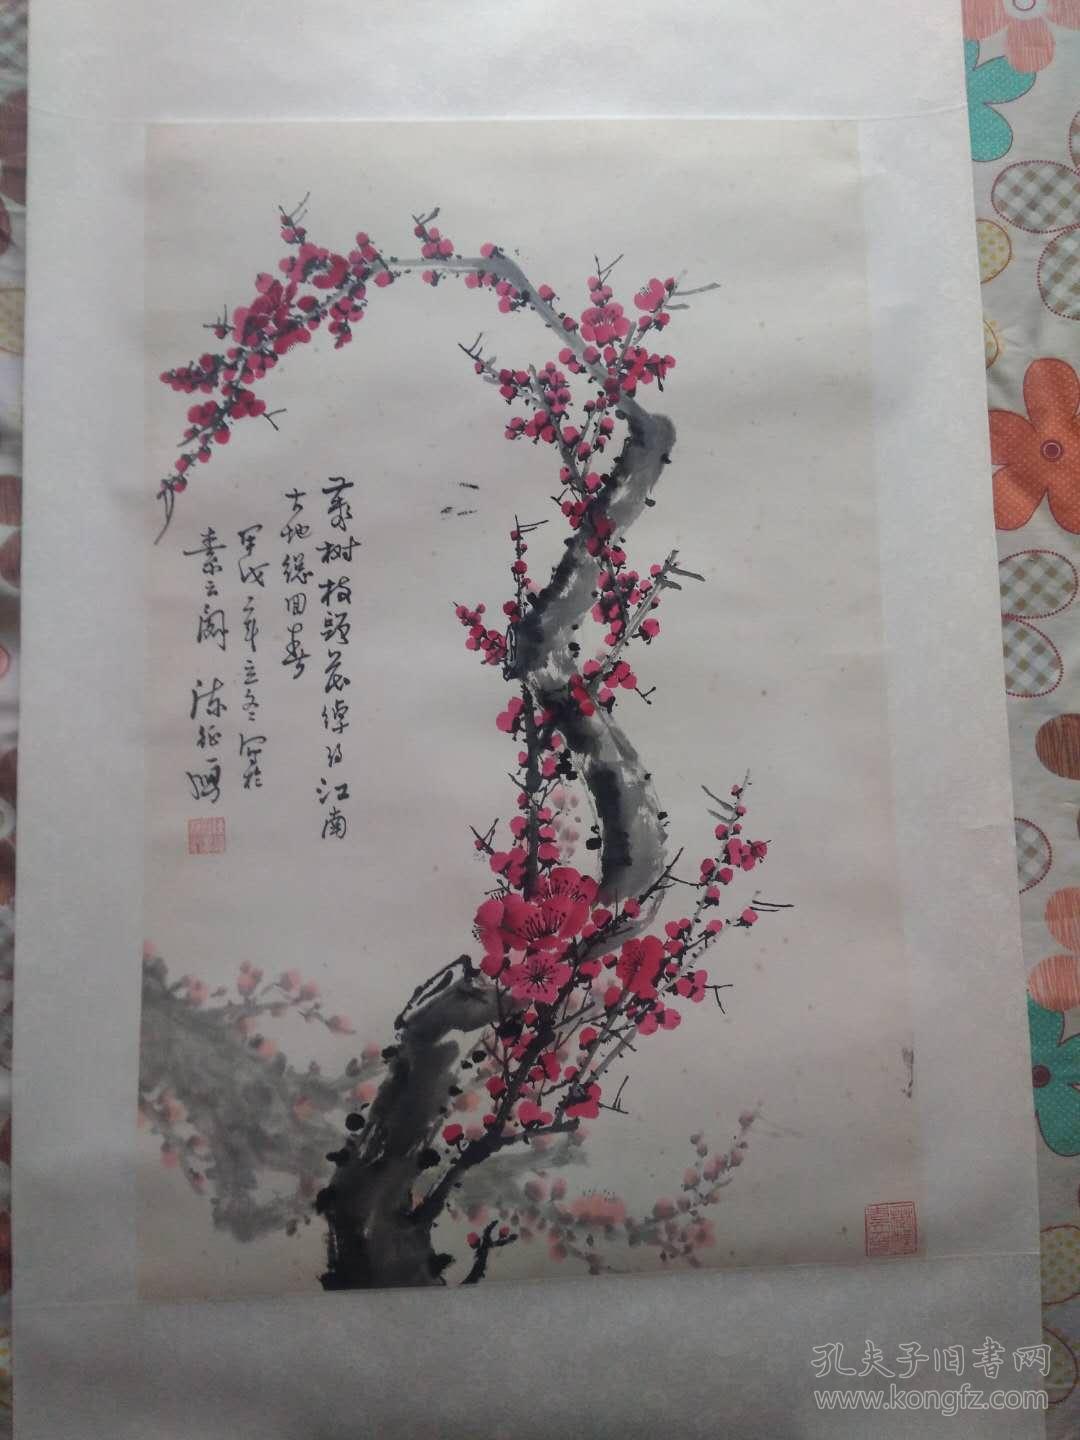 万树枝头花绰约江南
大地缌回春
甲戌年立冬写于
素云阁 陈征雁
孔夫子旧书网
www.kongfz.com